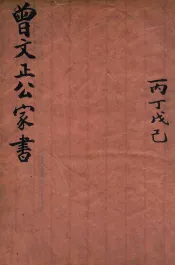 丙丁戊己
曾文正公家書